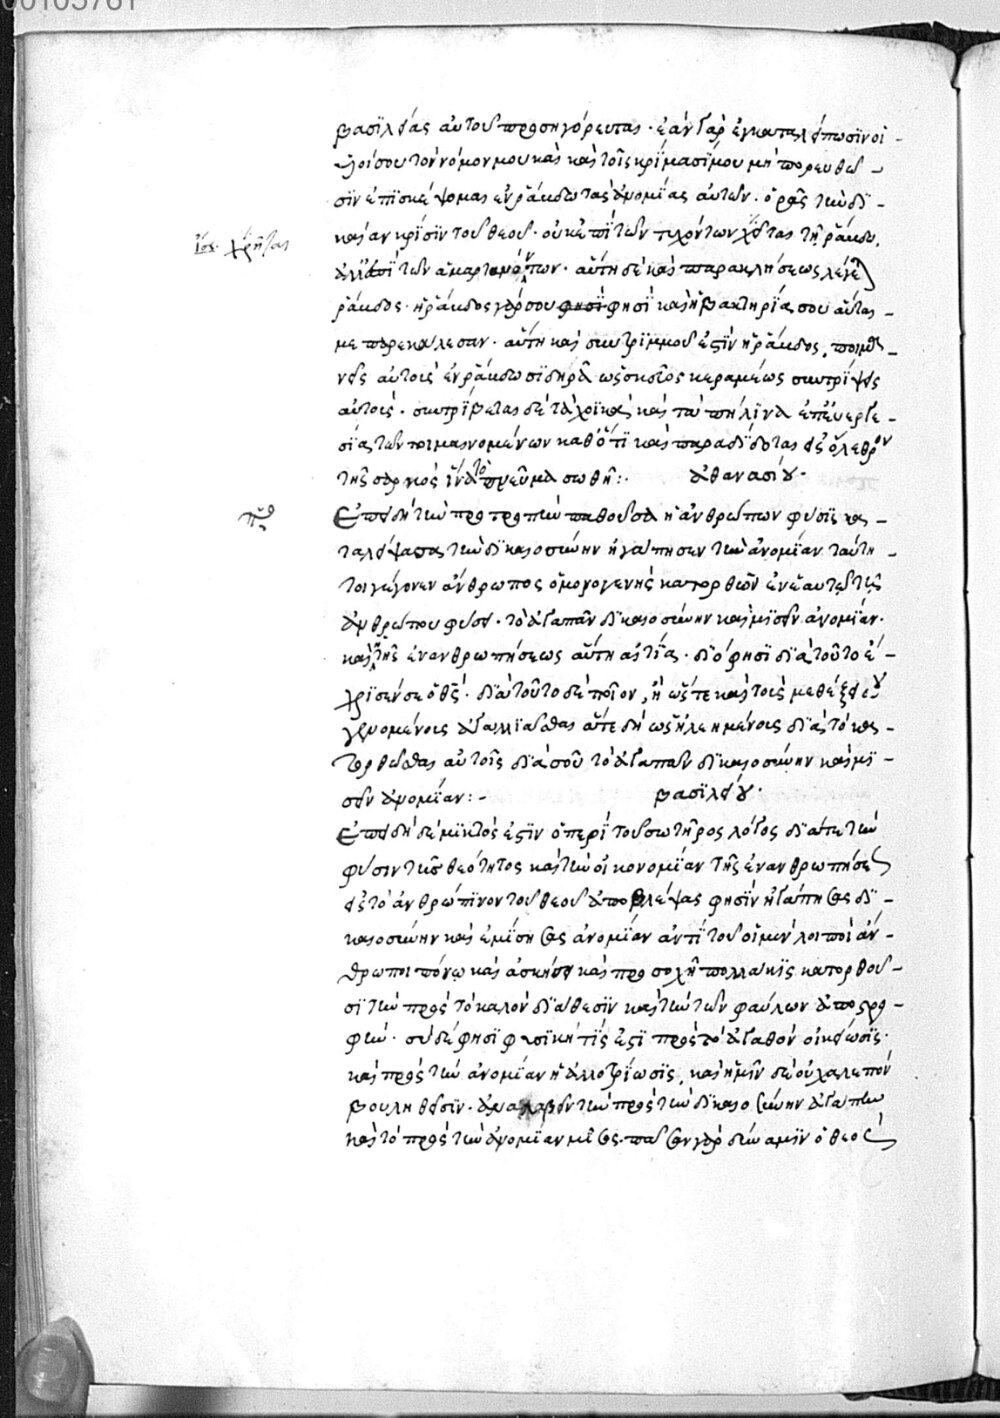 00105761
βασιλείας αὐτοῦ προσηγόρευται· ἐὰν γὰρ ἐγκαταλείπωσιν οἱ
υἱοί σου τὸν νόμον μου καὶ καὶ τοῖς κρίμασί μου μὴ πορευθῶ
σιν ἐπισκέψομαι ἐν ῥάβδω τὰς ἀνομίας αὐτῶν· ὁρᾶς τὴν δι
καίαν κρίσιν τοῦ θεοῦ· οὐκ ἐπὶ τῶν τυχόντων χρῆται τῆ ῥάβδω,
ἴσ. χρῆται
ἀλλ' ἐπὶ τῶν ἁμαρτανόντων· αὕτη δὲ καὶ παρακλήσεως λέγε
ῥάβδος· ἡ ῥάβδος γάρ σου φησὶ φησὶ καὶ ἡ βακτηρία σου αὗται
με παρεκάλεσαν· αὕτη καὶ συντριμμοῦ ἐστὶν ἡ ῥάβδος, ποιμαν
νεῖς αὐτοὺς ἐν ῥάβδω σιδηρᾶ ὡς σκεῦος κεραμέως συντρίψεις
αὐτούς· συντρίβεται δὲ τὰ χοϊκὰ καὶ τὰ πήλινα ἐπ' εὐεργε
σία τῶν ποιμαινομένων καθότι καὶ παραδίδοται εἰς ὄλεθρον
τῆς σαρκὸς ἵνα τὸ πνεῦμα σωθῆ:· ἀθανασίου·
Ἐπειδὴ τὴν προτροπὴν παθοῦσα ἡ ἀνθρώπων φύσις κα
ταλείψασα τὴν δικαιοσύνην ἠγάπησεν τὴν ἀνομίαν ταύτη
τοι γέγονεν ἄνθρωπος ὁ μονογενὴς κατορθῶν ἐν ἑαυτῶ τῆ
ἀνθρώπου φύσει· τὸ ἀγαπᾶν δικαιοσύνην καὶ μισεῖν ἀνομίαν·
καὶ τῆς ἐνανθρωπήσεως αὕτη αἰτία· διό φησι διὰ τοῦτο ἔ
χρισέν σε ὁ θεὸς· διὰ τοῦτο δὲ ποῖον, ἢ ὥστε καὶ τοὺς μεθέξει σου
γενομένους ἀγαλλιᾶσθαι ἅτε δὴ ὡς ἠλεημένους διὰ τὸ κα
τορθῶσθαι αὐτοῖς διὰ σοῦ τὸ ἀγαπᾶν δικαιοσύνην καὶ μι
σεῖν ἀνομίαν:- βασιλείου·
Ἐπειδὴ δὲ μικτός ἐστιν ὁ περὶ τοῦ σωτῆρος λόγος διά τε τὴν
φύσιν τῆς θεότητος καὶ τὴν οἰκονομίαν τῆς ἐνανθρωπήσε
εἰς τὸ ἀνθρώπινον τοῦ θεοῦ ἀποβλέψας φησὶν ἠγάπησας δι
καιοσύνην καὶ ἐμίσησας ἀνομίαν ἀντὶ τοῦ οἱ μὲν λοιποὶ ἄν
θρωποι πόνω καὶ ἀσκήσει καὶ προσοχῆ πολλάκις κατορθοῦ
σι τὴν πρὸς τὸ καλὸν διάθεσιν καὶ τὴν τῶν φαύλων ἀποστρο
φήν· σὺ δέ φησι φυσική τίς ἐστι πρὸς τὸ ἀγαθὸν οἰκείωσις·
καὶ πρὸς τὴν ἀνομίαν ἡ ἀλλοτρίωσις, καὶ ἡμῖν δὲ οὐ χαλεπὸν
βουληθεῖσιν· ἀναλαβεῖν τὴν πρὸς τὴν δικαιοσύνην ἀγάπην
καὶ τὸ πρὸς τὴν ἀνομίαν μῖσος· πᾶσαν γὰρ δύναμιν ὁ θεὸς